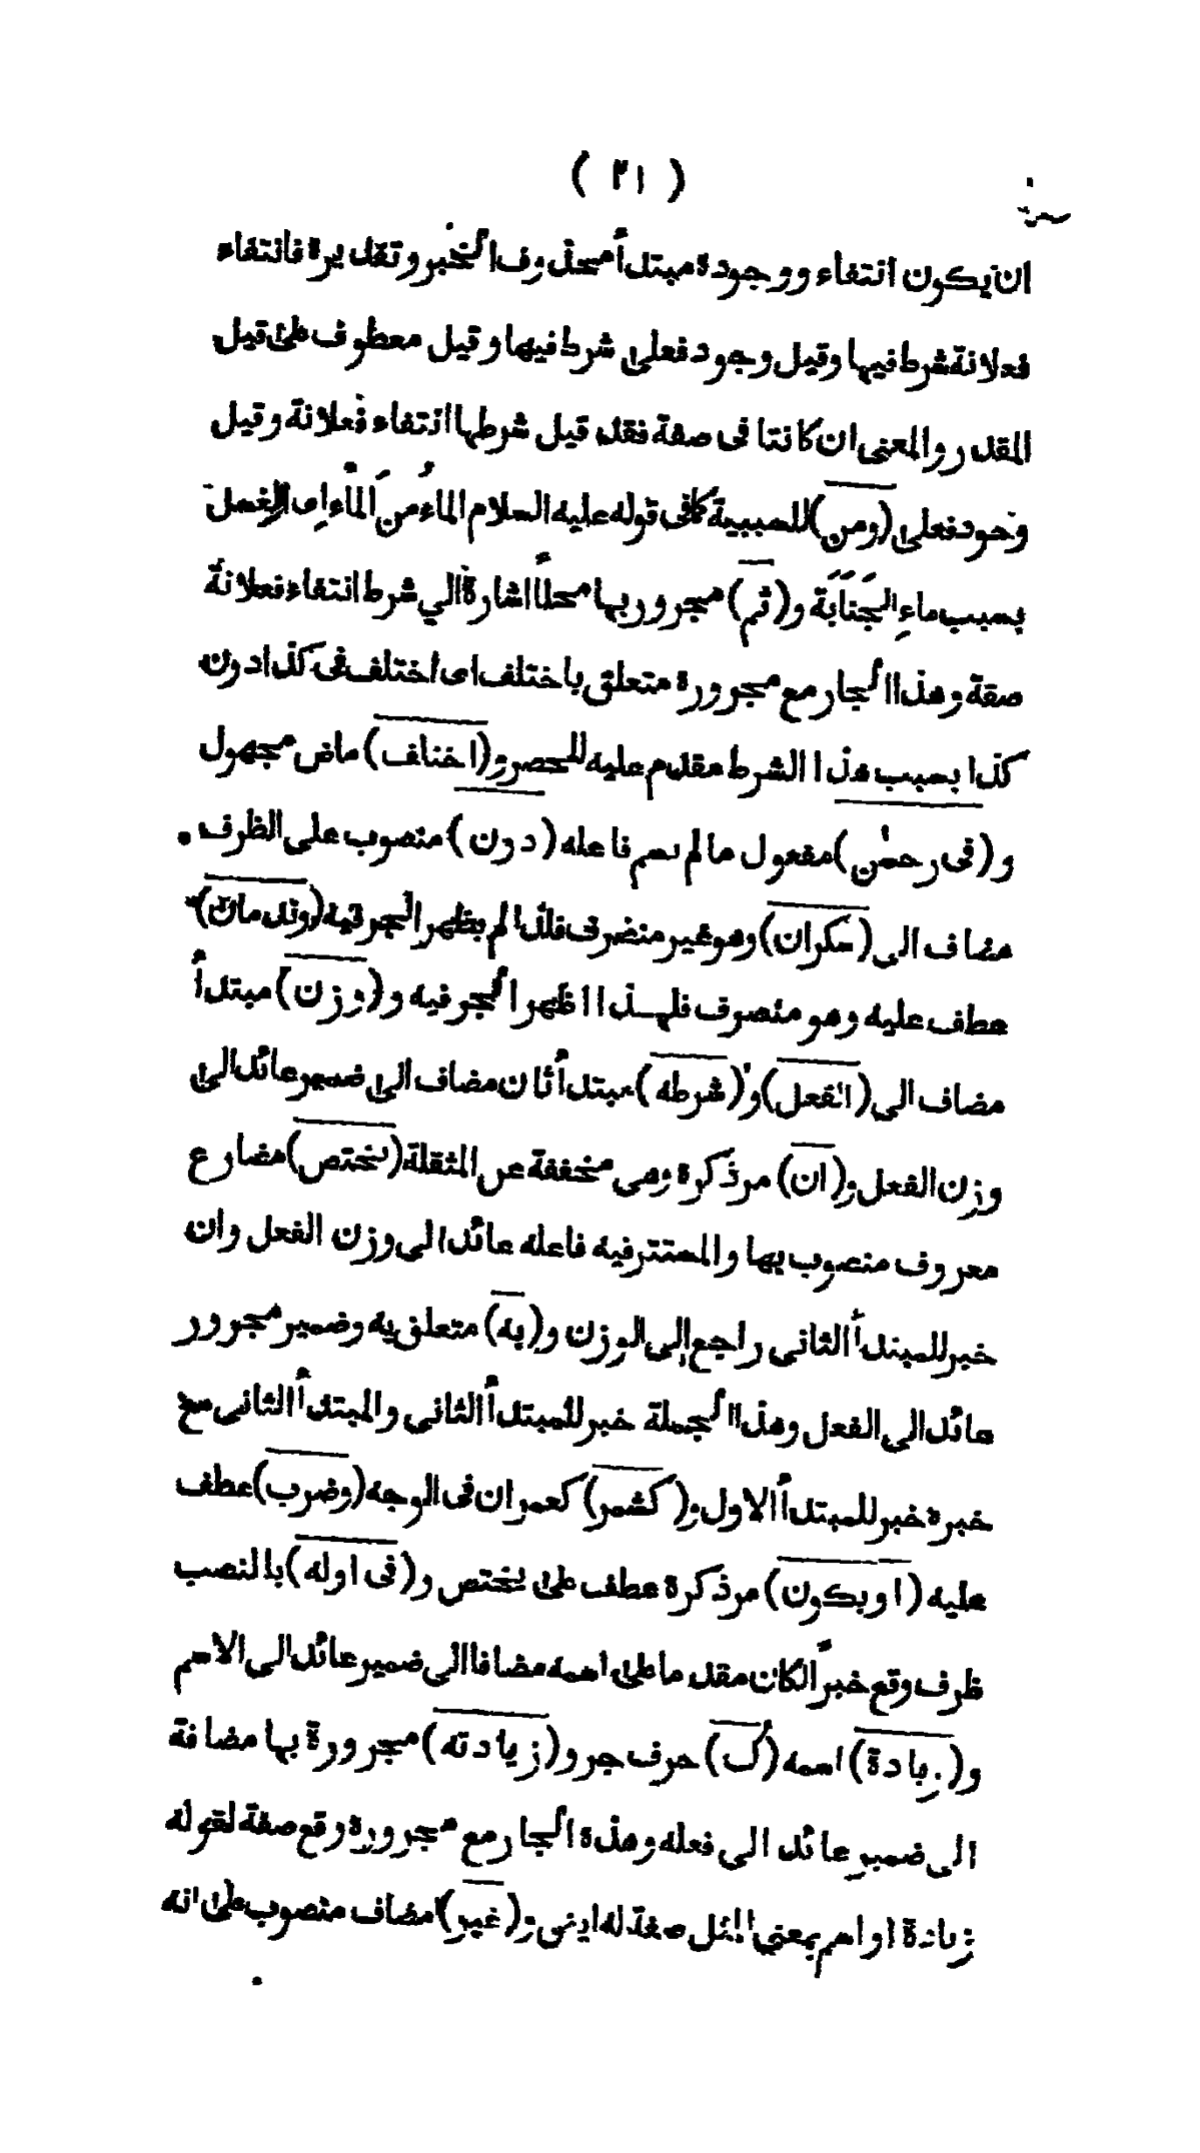 ( ٢١ )
ان يكون انتفاء ووجودة مبتدأ محذوف الخبر وتقديرة فانتفاء
فعلانة شرط فيها وقيل وجود فعلى شرط فيها وقيل معطوف على قيل
المقدر والمعنى ان كانتا فى صفة فقد قيل شرطها انتفاء فعلانة وقيل
وجود فعلى (ومن) للسببية كما فى قوله عليه السلام الماءُ من الماء اى الغسل
بسبب ماءِ الجَنَابَة و(ثم) مجرور بها محلاً اشارة الي شرط انتفاء فعلانة
صفة وهذا الجار مع مجرورة متعلق باختلف اى اختلف فى كذا دون
كذا بسبب هذا الشرط مقدم عليه للحصر و(اختلف) ماض مجهول
و(فى رحمٰن) مفعول ما لم يسم فاعله (دون) منصوب على الظرف
مضاف الى (سكران) وهو غير منصرف فلذا لم يظهر الجر فيه (وندمان)
عطف عليه وهو منصرف فلهذا اظهر الجر فيه و(وزن) مبتدأ
مضاف الى (الفعل) و(شرطه) مبتدأ ثان مضاف الى ضمير عائد الى
وزن الفعل و(ان) مرذكرة وهى مخففة عن المثقلة (يختص) مضارع
معروف منصوب بها والمستتر فيه فاعله عائد الى وزن الفعل وان
خبر للمبتدأ الثانى راجع إلى الوزن و(به) متعلق به وضمير مجرور
عائد الى الفعل وهذا الجملة خبر للمبتدأ الثانى والمبتدأ الثانى مع
خبرة خبر للمبتدأ الاول و(كشمر) كعمران فى الوجه (وضرب) عطف
عليه (او يكون) مرذكرة عطف على يختص و(فى اوله) بالنصب
ظرف وقع خبرًا لكان مقدما على اسمه مضافا الى ضمير عائد الى الاسم
و(زيادة) اسمه (كَ) حرف جر و(زيادته) مجرورة بها مضافة
الى ضمير عائد الى فعله وهذة الجار مع مجرورة وقع صفة لقوله
زيادة او اسم بمعنى المثل صفة له ايضى و(غير) مضاف منصوب على انه